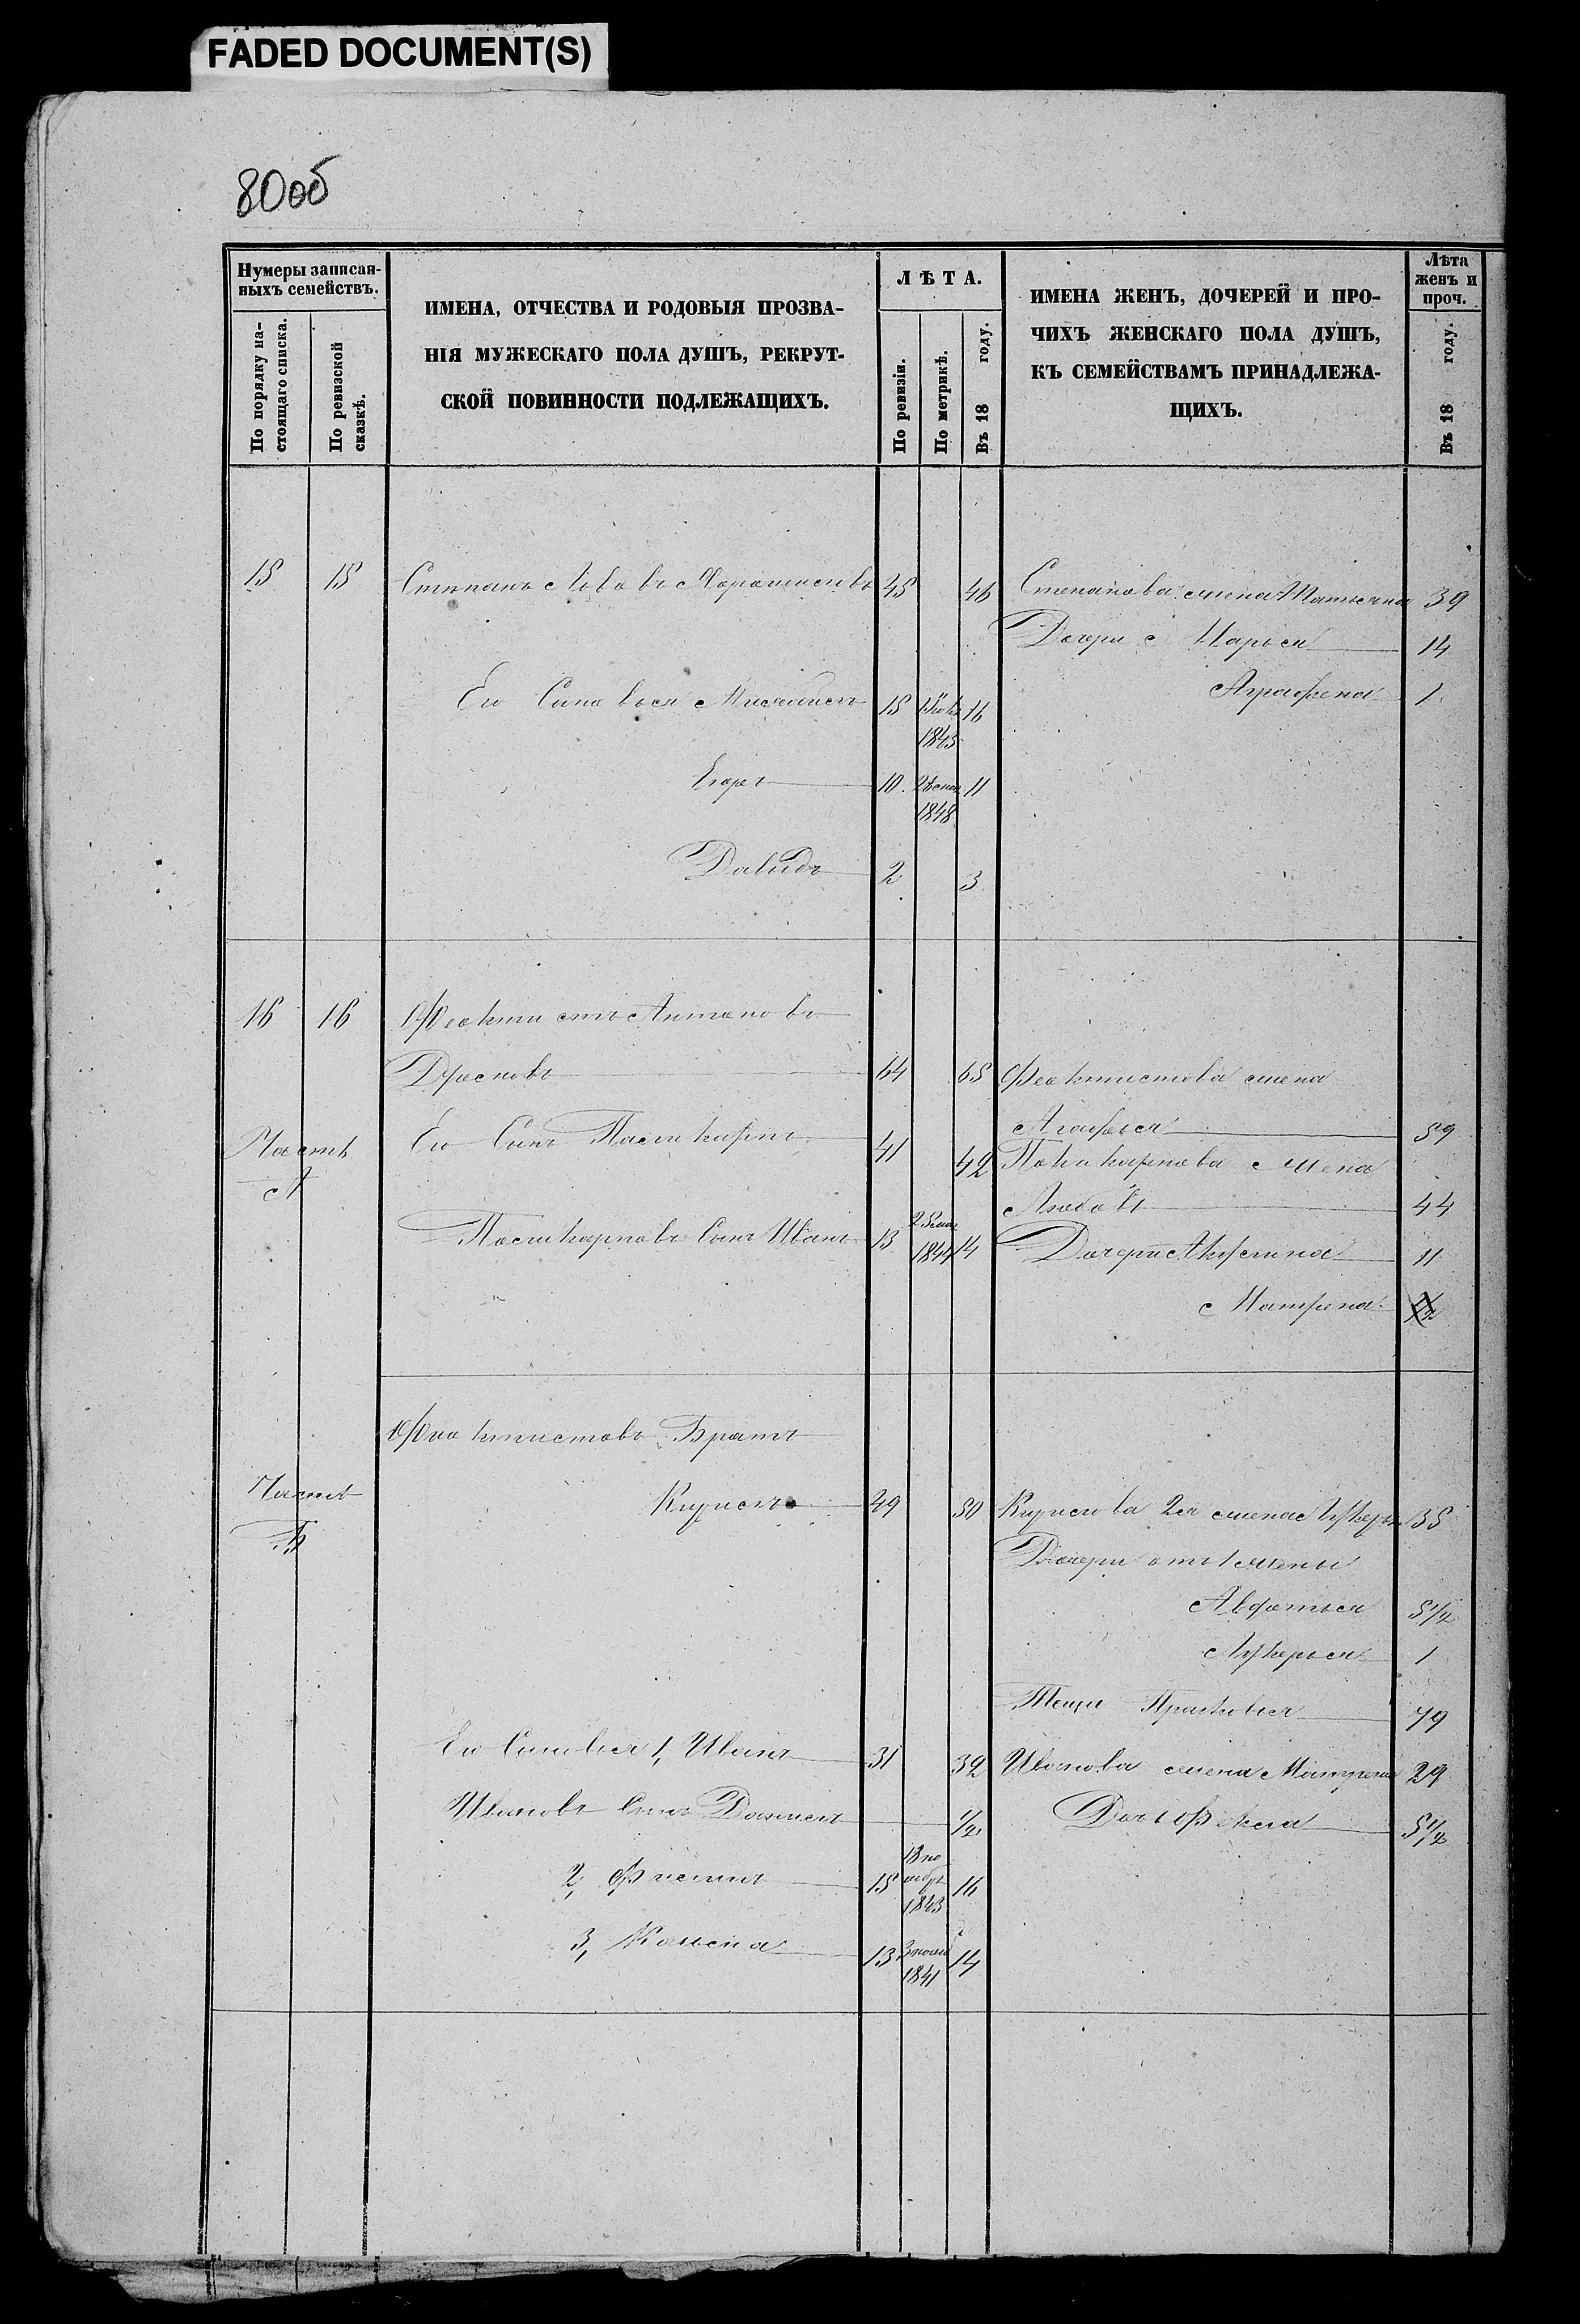 FADED DOCUMENT(S)
80об
Нумеры записан-
ныхъ семействъ.
По порядку на-
стоящаго списка.
По ревизской
сказкѣ.
ИМЕНА, ОТЧЕСТВА И РОДОВЫЯ ПРОЗВА-
НІЯ МУЖЕСКАГО ПОЛА ДУШЪ, РЕКРУТ-
СКОЙ ПОВИННОСТИ ПОДЛЕЖАЩИХЪ.
ЛѢТА.
По ревизіи.
По метрикѣ.
Въ 18 году.
ИМЕНА ЖЕНЪ, ДОЧЕРЕЙ И ПРО-
ЧИХЪ ЖЕНСКАГО ПОЛА ДУШЪ,
КЪ СЕМЕЙСТВАМЪ ПРИНАДЛЕЖА-
ЩИХЪ.
Лѣта
женъ и
проч.
Въ 18 году.
15 15 Степанъ 45 46 Степанова жена Татьяна 39
Дочери Марья 14
Аграфена 1
Его Сыновья Михаилъ 15 1843 16
Егоръ 10 1848 11
Давидъ 2 3
16 16 Феоктистъ Антоновъ
64 65 Феоктистова жена
Агафья 59
Часть
А
Его Сынъ Поликарпъ 41 42 Поликарпова жена
Любовь 44
Поликарповъ Сынъ Иванъ 13 1844 14 Дочери Акулина 11
Матрена
Феоктистовъ Братъ
Часть
Б
Кирилъ 49 50 Кирилова 2я жена 35
Дочери отъ 1 жены
Авдотья 5 1/2
Лукерья 1
Теща Прасковья 79
Его Сыновья 1, Иванъ 31 32 Иванова жена Матрена 29
Ивановъ Сынъ Даниилъ 1/2 Дочь Фекла 5 1/2
2, Филипъ 15 1843 16
3, 13 1841 14